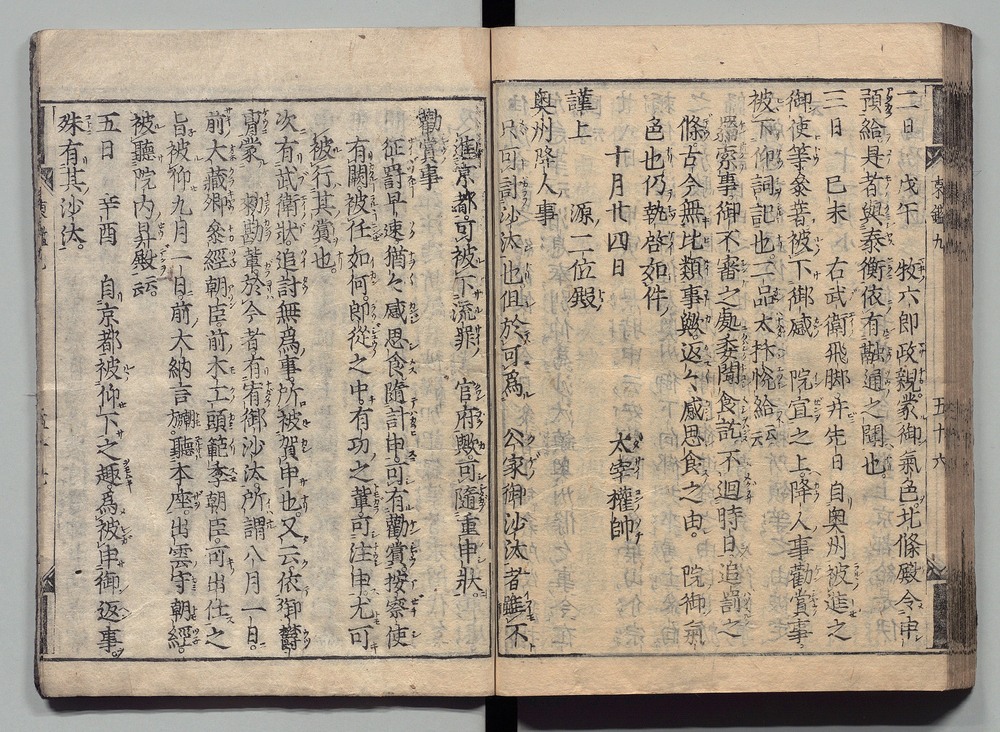 二日 戊午 牧六郎政親蒙御氣色北條殿令申
預給是者與泰衡依有融通之聞也
三日 己未 右武衛飛脚并先日自奥州被進之
御使等參著被下御感 院宣之上降人事勸賞事
被下仰詞記也二品太抃悦給云云
囚索事御不審之處委聞食訖不廻時日追罸之
條古今無比類事歟返々感思食之由 院御氣
色也仍執啓如件
十月廿四日 太宰權帥
謹上 源二位殿
奥州降人事
只可討沙汰也但於可為 公家御沙汰者雖不
進京都可被下流罪 官府歟可隨重申狀
勸賞事
征罸早速猶々感思食隨計申可有勸賞按察使
有闕被任如何郎從之中有功之輩可注申尤可
被行其賞也
次有武衛狀追討無為事所被賀申也又云依御欝
胷蒙 勅勘輩於今者有宥御沙汰所謂八月一日
前大藏卿泰經朝臣前木工頭範季朝臣可出仕之
旨被仰九月一日前大納言 聽本座出雲守朝經
被聽院内昇殿云云
五日 辛酉 自京都被仰下之趣為被申御返事
殊有其沙汰
東鑑九
五十六